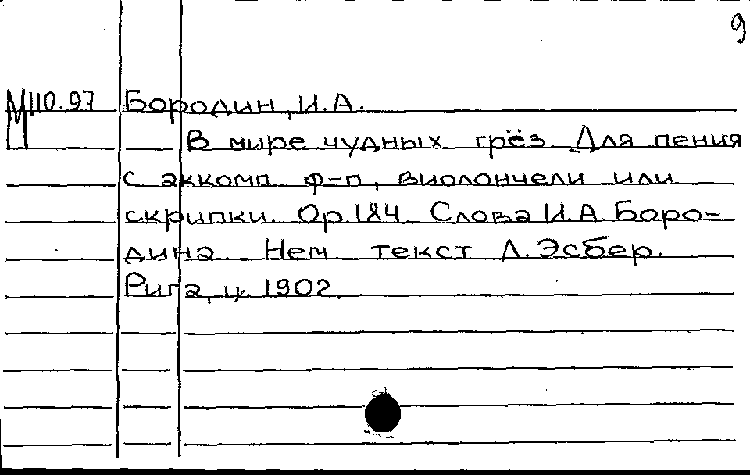 9
М110.97 Бородин, И.А.
В мире чудных грёз. Для пения
с аккомп. ф-п, виолончели или
скрипки. Op. 184. Слова И.А. Боро-
дина. Нем. текст Л. Эсбер.
Рига, ц. 1902.